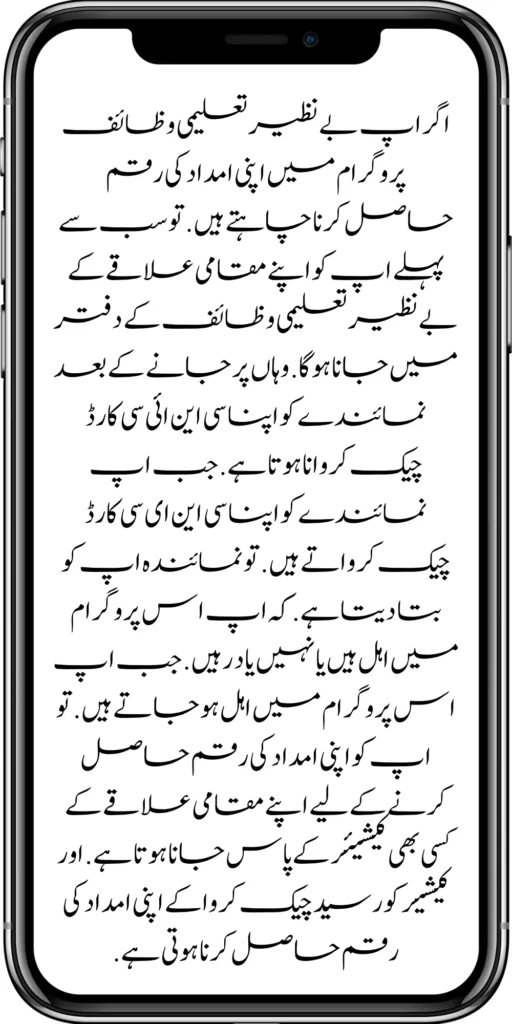 اگر اپ بے نظیر تعلیمی وظائف
پروگرام میں اپنی امداد کی رقم
حاصل کرنا چاہتے ہیں. تو سب سے
پہلے اپ کو اپنے مقامی علاقے کے
بے نظیر تعلیمی وظائف کے دفتر
میں جانا ہوگا. وہاں پر جانے کے بعد
نمائندے کو اپنا سی این ائی سی کارڈ
چیک کروانا ہوتا ہے. جب اپ
نمائندے کو اپنا سی این ای سی کارڈ
چیک کرواتے ہیں. تو نمائندہ اپ کو
بتا دیتا ہے. کہ اپ اس پروگرام
میں اہل ہیں یا نہیں یاد رہیں. جب اپ
اس پروگرام میں اہل ہو جاتے ہیں. تو
اپ کو اپنی امداد کی رقم حاصل
کرنے کے لیے اپنے مقامی علاقے کے
کسی بھی کیشیئر کے پاس جانا ہوتا ہے. اور
کیشیر کو رسید چیک کروا کے اپنی امداد کی
رقم حاصل کرنا ہوتی ہے.